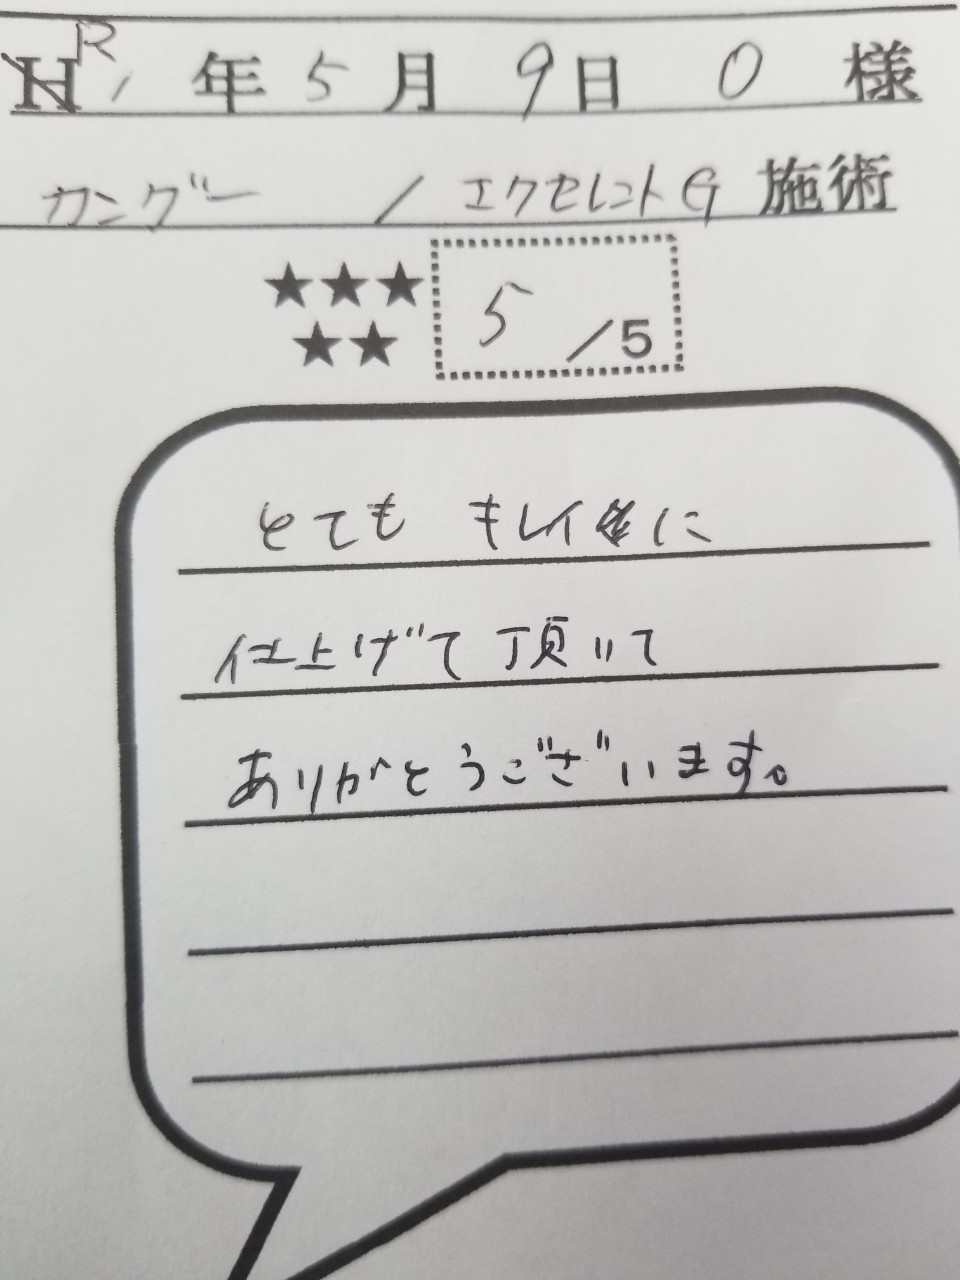 R1年5月9日 O様
カングー / エクセレントG 施術
★★★
★★
5/5
とても キレイに
仕上げて頂いて
ありがとうございます。